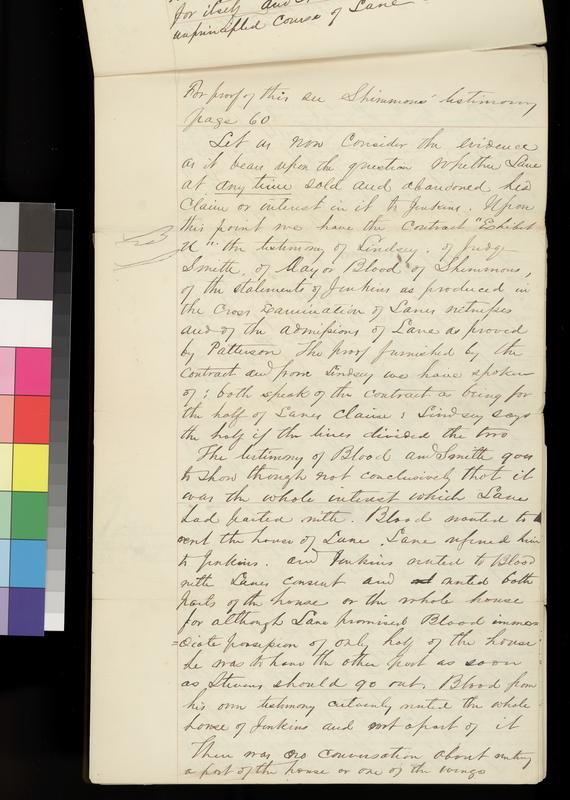 for itself and
unprincipled course of Lane
For proof of this see Shimmons' testimony
page 60
Let us now consider the evidence
as it bears upon the question whether Lane
at any time sold and abandoned his
claim or interest in it to Jenkins. Upon
this point we have the contract "Exhibit
the testimony of Lindsey, of Judge
Smith, of Mayor Blood of Shimmons,
of the statements of Jenkins as produced in
the cross examination of Lanes witnesses
and of the admissions of Lane as proved
by Patterson The proof furnished by the
contract and from Lindsey we have spoken
of; both speak of the contract as being for
the half of Lanes claim; Lindsey says
the half if the lines divided the two
The testimony of Blood and Smith goes
to show though not conclusively that it
was the whole interest which Lane
had parted with. Blood wanted to
rent the house of Lane. Lane refered him
to Jenkins. and Jenkins rented to Blood
with Lanes consent and rented both
parts of the house or the whole house
for although Lane promised Blood imme=
=diate possession of only half of the house
he was to have the other part as soon
as Stevens should go out. Blood from
his own testimony certainly rented the whole
house of Jenkins and not apart of it
There was no conversation about renting
a part of the house or one of the wings